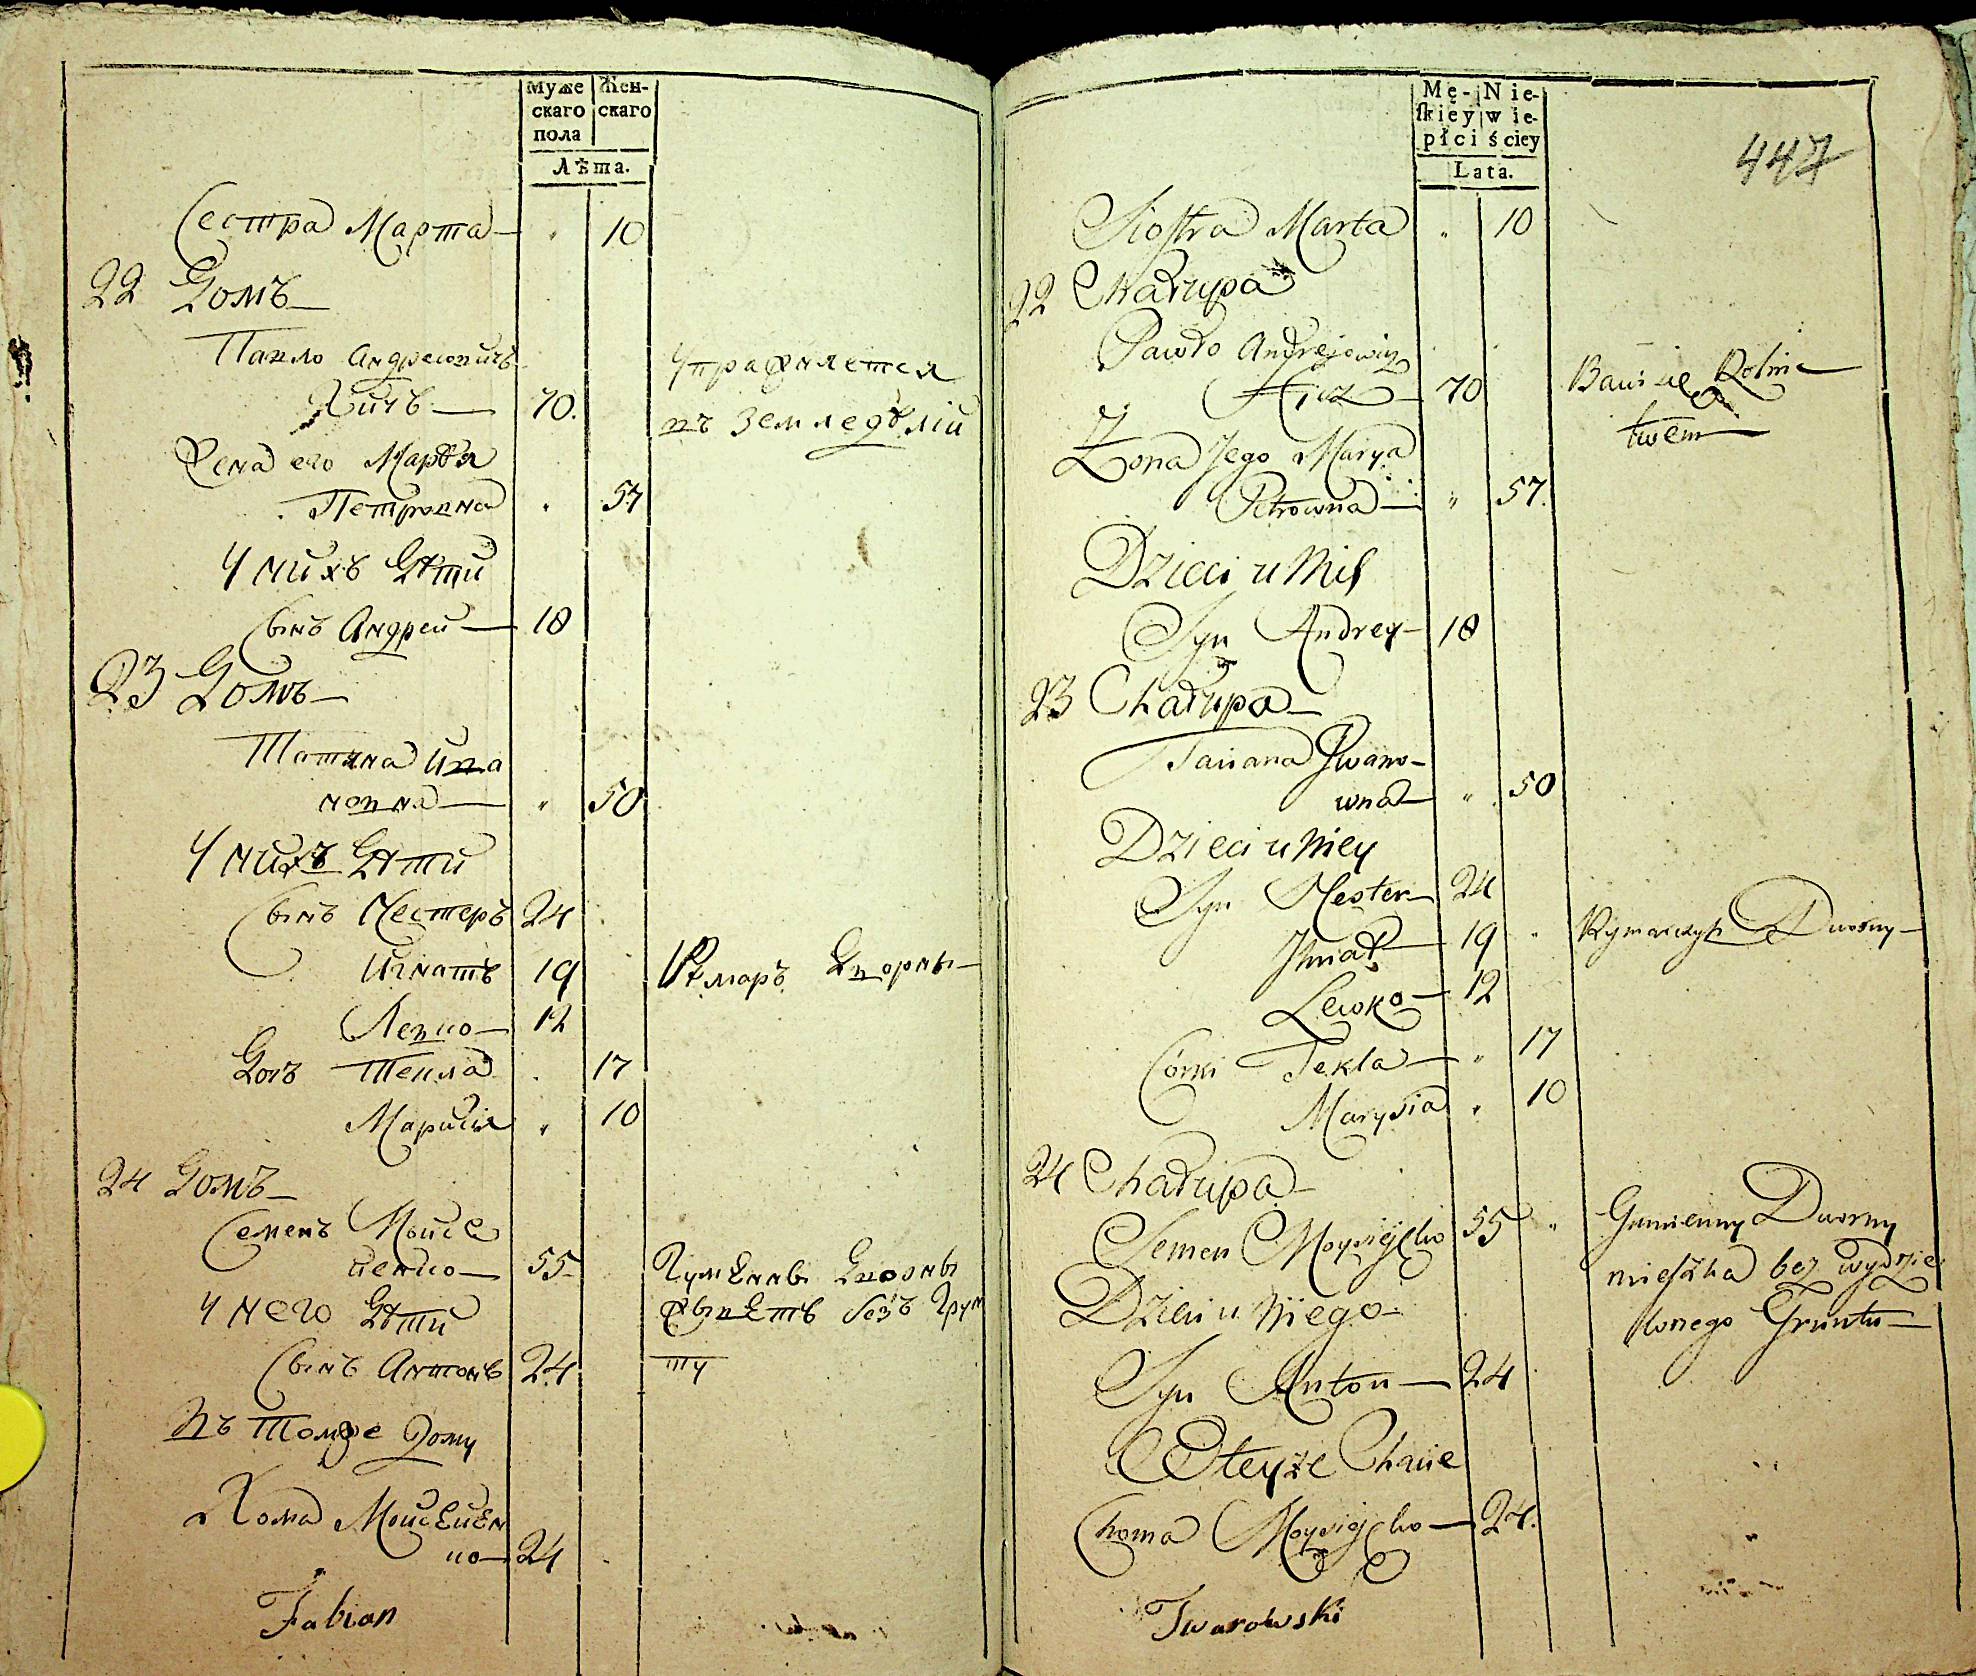 Муже Жен-
скаго скаго
пола
Лѣта.
Сестра Марта 10
22 Домъ
Павло Андреевичъ Упражняется
Кичъ 70. въ Земледѣліи
Жена его Марья
Петровна 57
У нихъ Дѣти
Сынъ Андрей 18
23 Домъ
Татяна Ива
новна 50
У нихъ Дѣти
Сынъ Нестеръ 24
Игнатъ 19 Римаръ Дворны
Левко 12
Дочь Текла 17
Марися 10
24 Домъ
Семенъ Мойсе
йенко 55 Гумѣнны Дворны
У него Дѣти живѣтъ безъ Грун
Сынъ Антонъ 24 ту
Въ томже Дому
Хома Мойсѣйѣн
ко 24
Fabian
Mę- Nie-
ſkiey wie-
płci ściey
Lata.
447
Siostra Marta 10
22 Chałupa
Pawło Andrejowicz
Kicz 70 Bawi się Rolnic
Żona Jego Marya twem
Petrowna 57.
Dzieci u Nih
Syn Andrey 18
23 Chałupa
Taciana Jwano-
wna 50
Dzieci u Niey
Syn Nester 24
Jhnat 19 Rymarczyk Dworny
Lewko 12
Córki Tekla 17
Marysia 10
24 Chałupa
Semen Moysiejko 55 Gumienny Dworny
mieszka bez wydzie
Dzieci u Niego lonego Gruntu
Syn Anton 24
W Teyże Chacie
Choma Moysiejko 24.
Twarowski